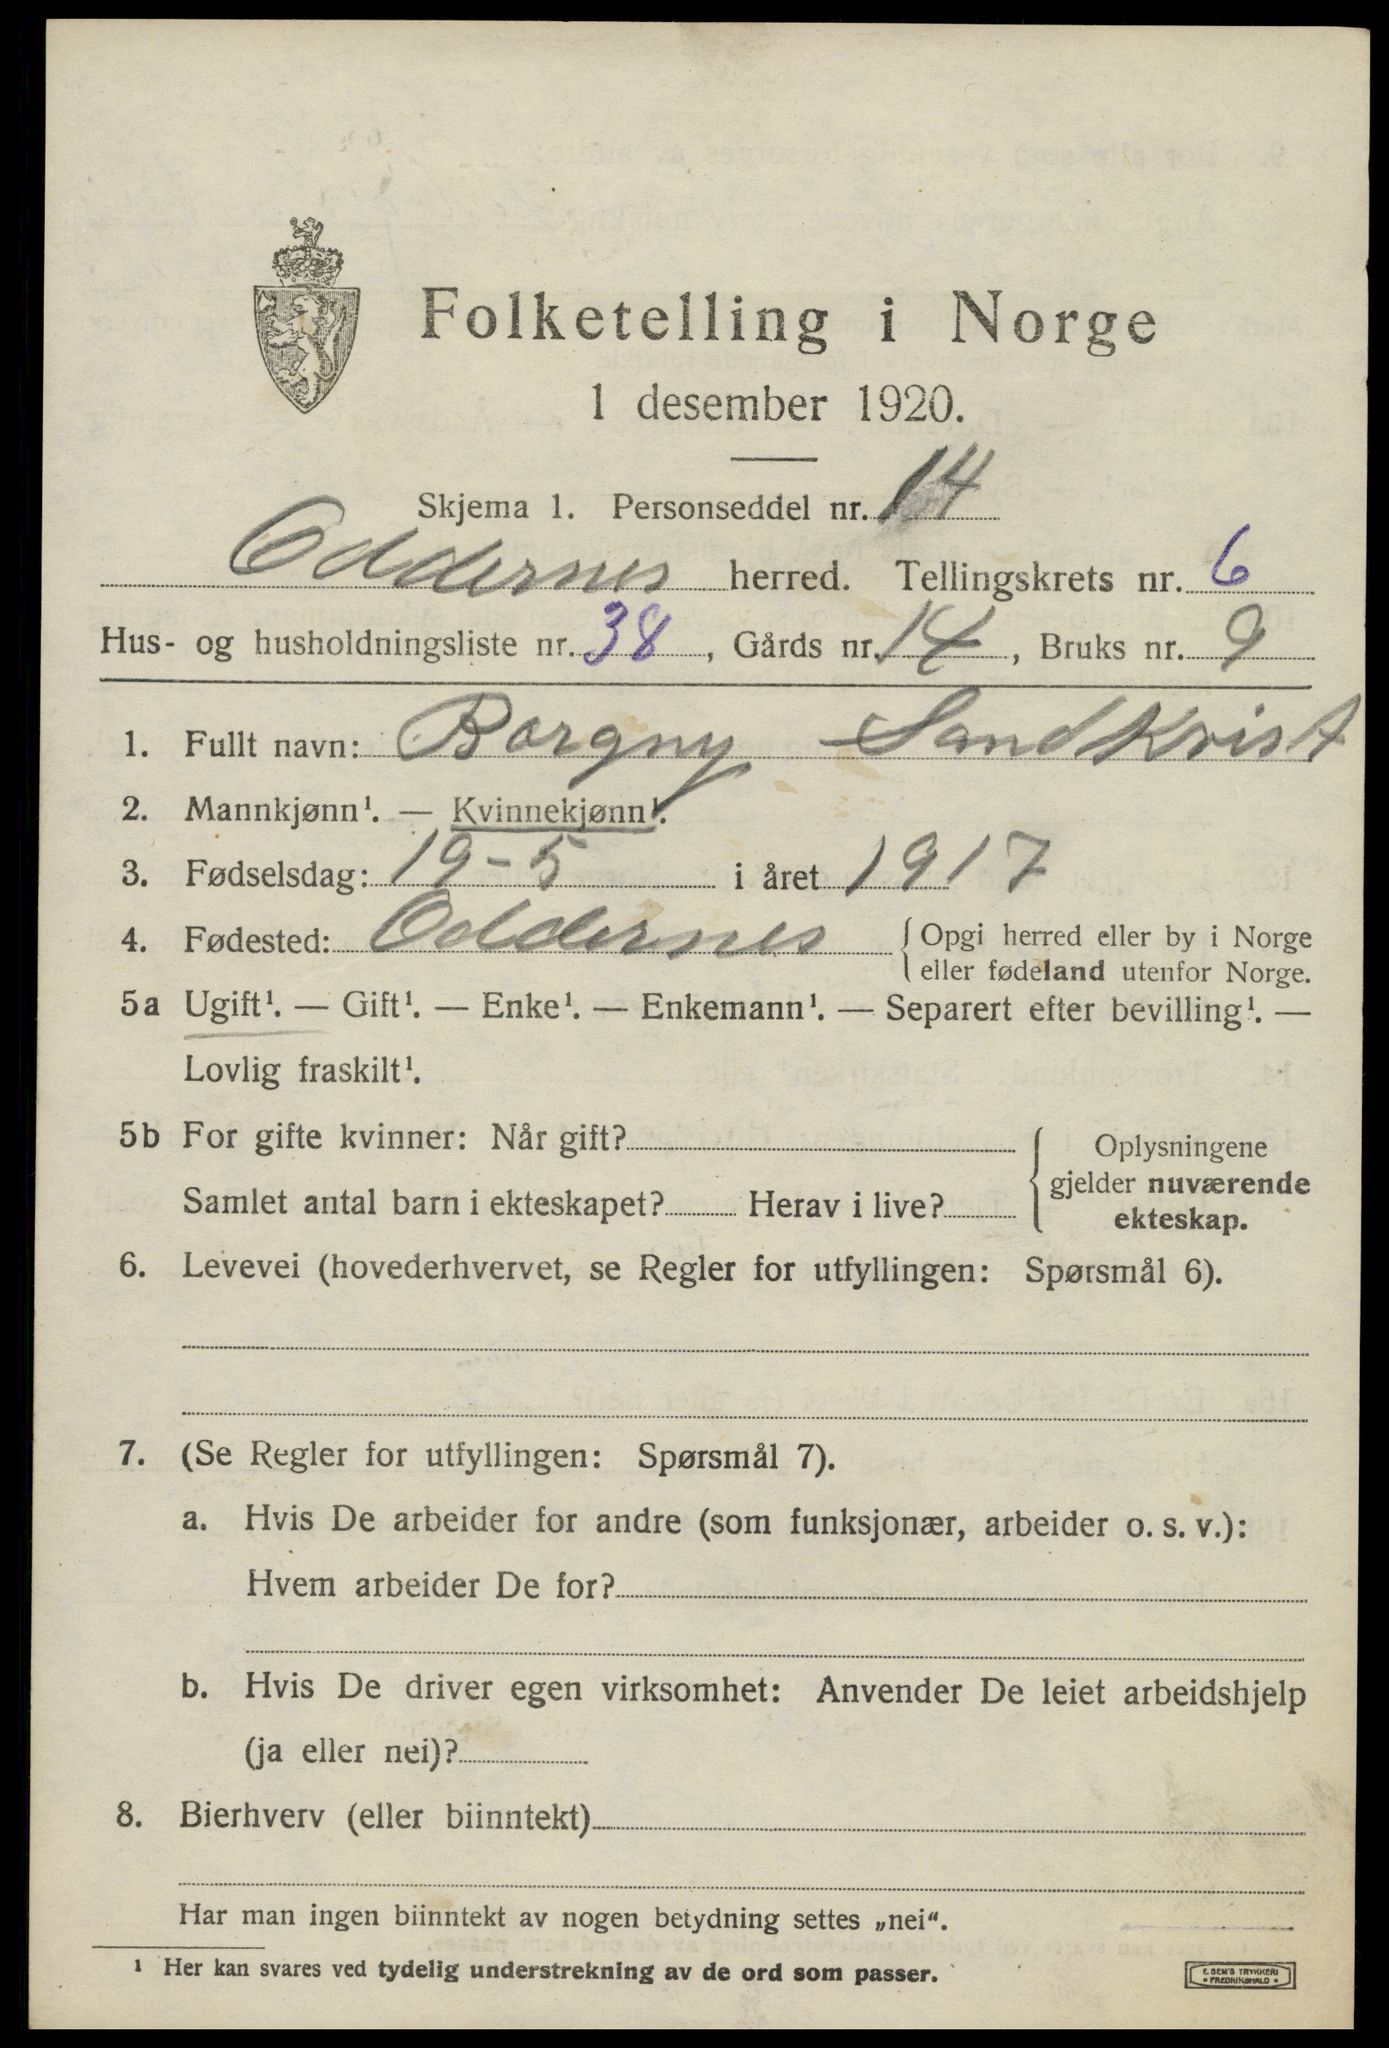 Folketelling i Norge
1 desember 1920.
Skjema 1. Personseddel nr. 14
Oddernes herred. Tellingskrets nr. 6
Hus- og husholdningsliste nr. 38, Gårds nr. 14, Bruks nr. 9
1. Fullt navn: Borgny Sandkvist
2. Mannkjønn¹. — Kvinnekjønn¹.
3. Fødselsdag: 19-5 i året 1917
4. Fødested: Oddernes { Opgi herred eller by i Norge
eller fødeland utenfor Norge.
5a Ugift¹. — Gift¹. — Enke¹. — Enkemann¹. — Separert efter bevilling¹. —
Lovlig fraskilt¹.
5b For gifte kvinner: Når gift?
Samlet antal barn i ekteskapet? Herav i live?
Oplysningene
gjelder nuværende
ekteskap.
6. Levevei (hovederhvervet, se Regler for utfyllingen: Spørsmål 6).
7. (Se Regler for utfyllingen: Spørsmål 7).
a. Hvis De arbeider for andre (som funksjonær, arbeider o. s. v.):
Hvem arbeider De for?
b. Hvis De driver egen virksomhet: Anvender De leiet arbeidshjelp
(ja eller nei)?
8. Bierhverv (eller biinntekt)
Har man ingen biinntekt av nogen betydning settes „nei“.
¹ Her kan svares ved tydelig understrekning av de ord som passer.
E. SEM'S TRYKKERI
FREDRIKSHALD